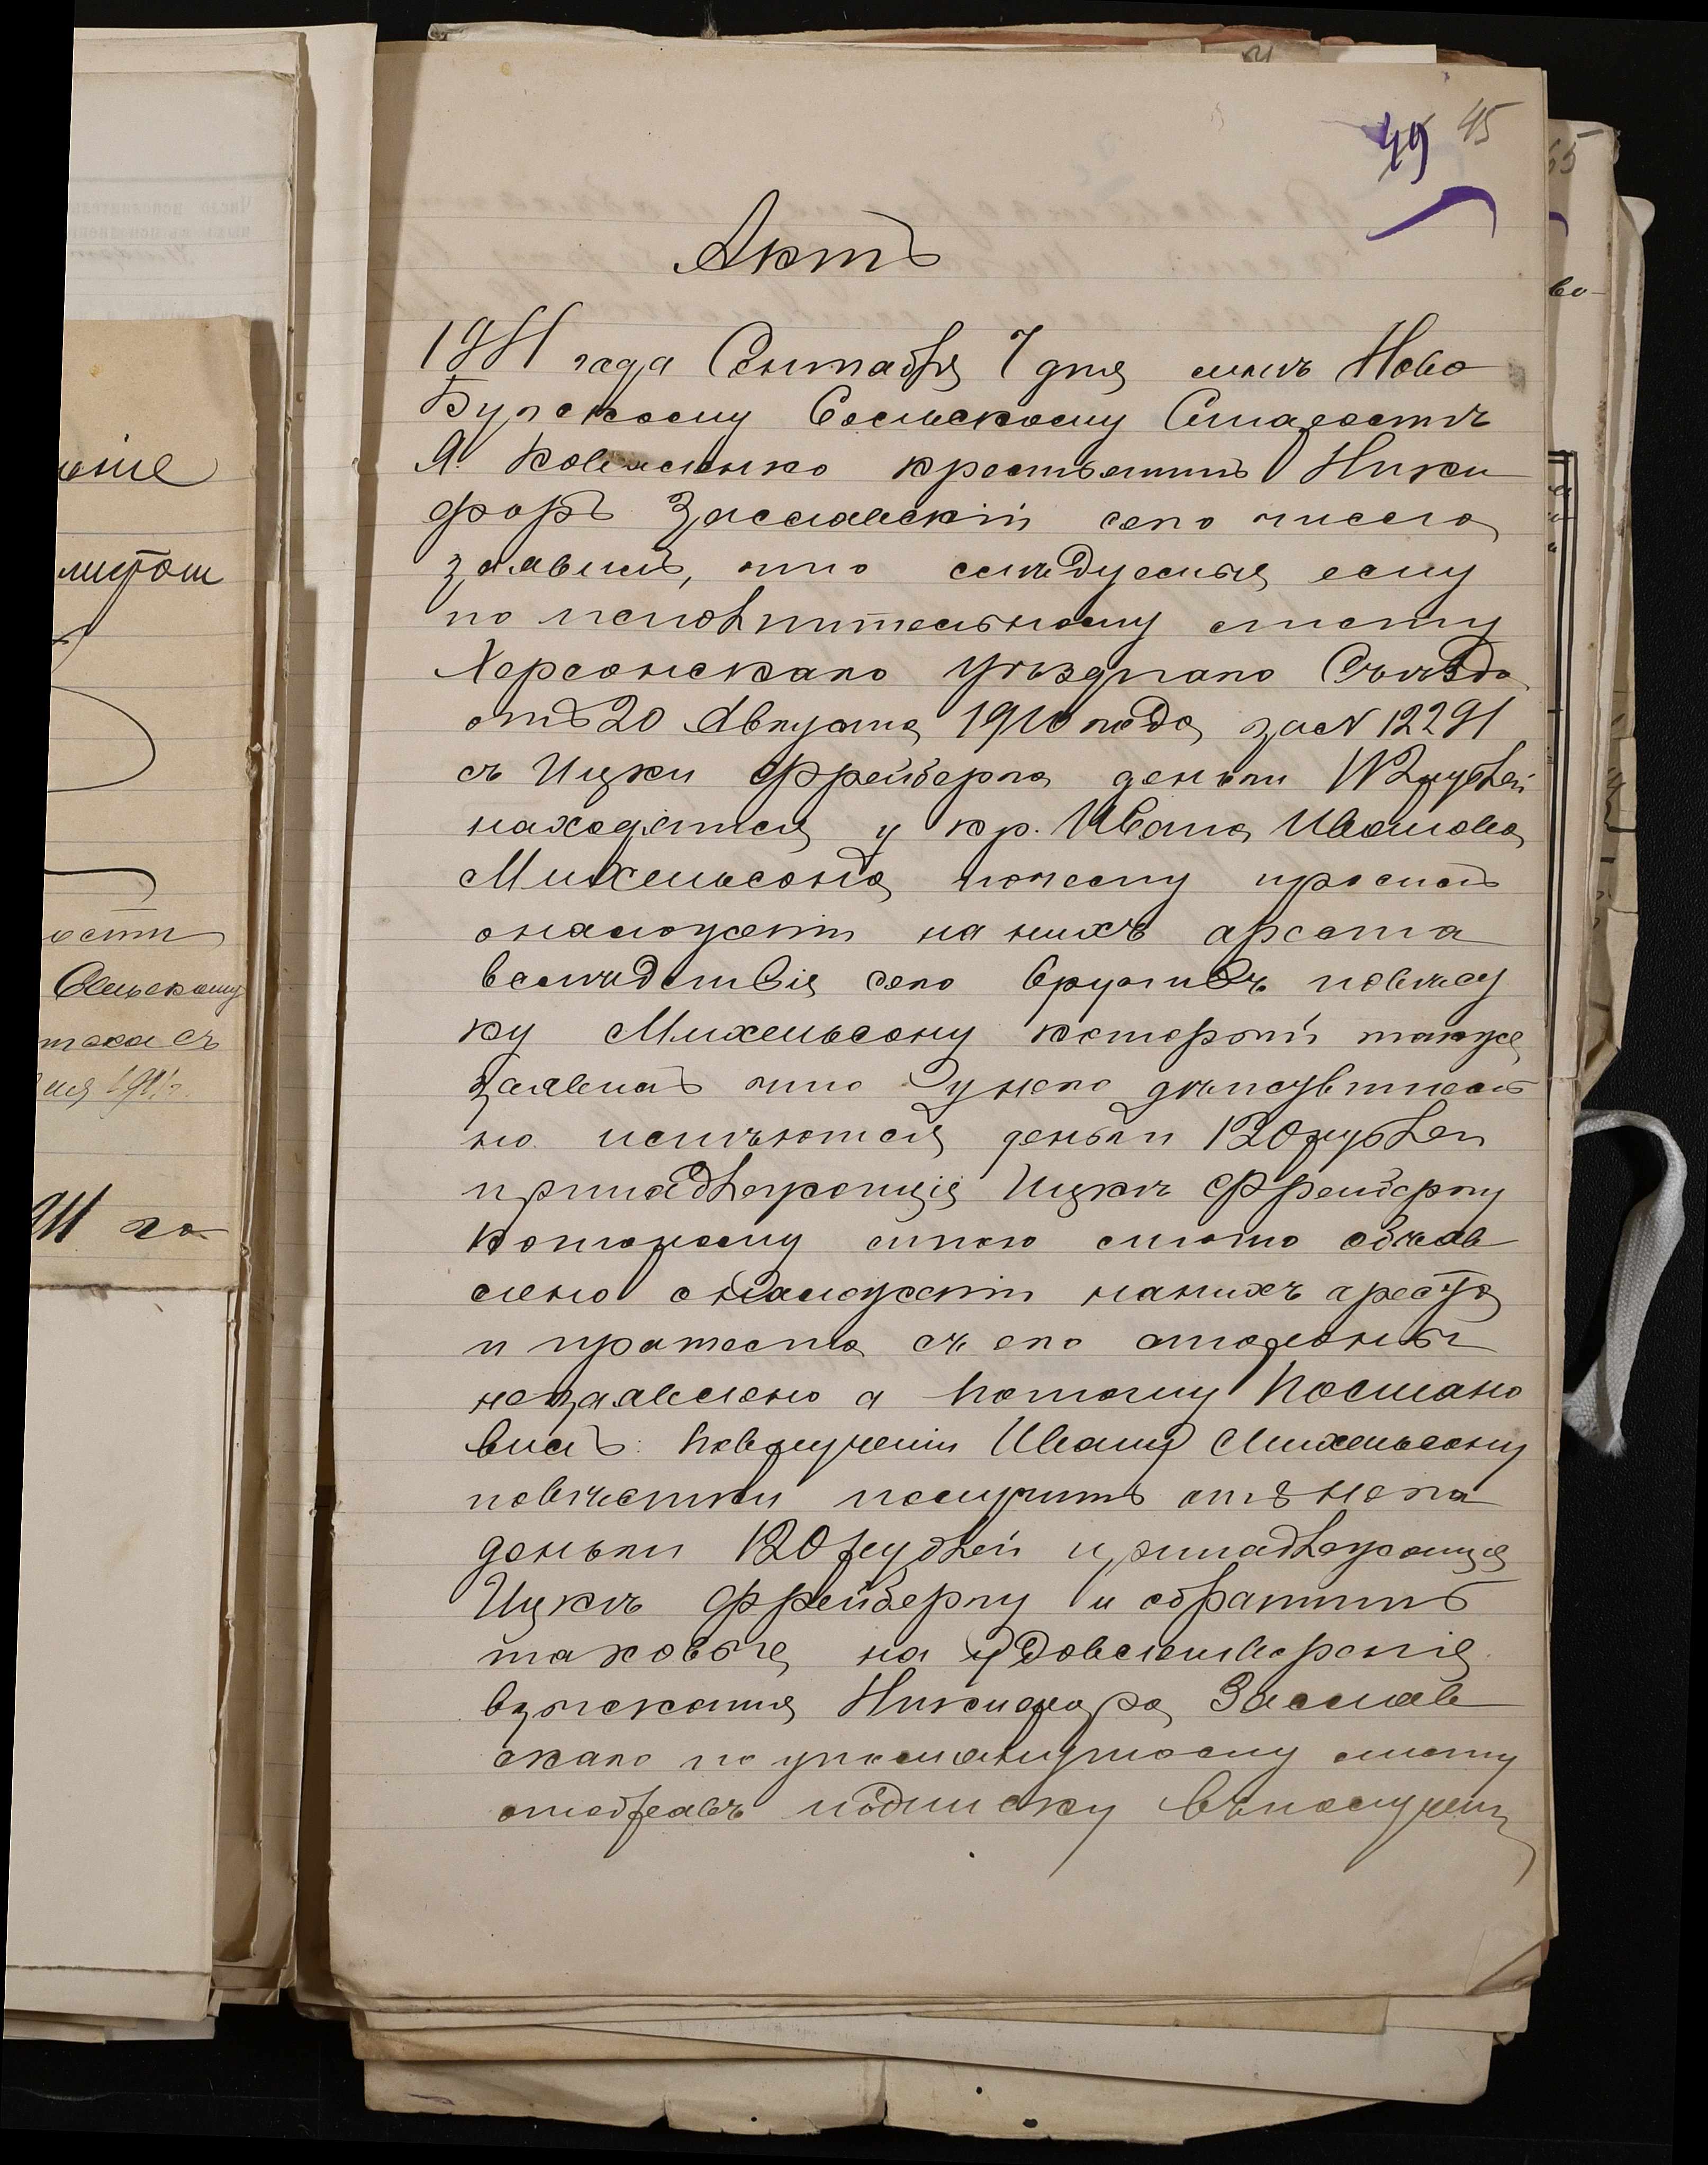 49 45
Актъ
1911 года Сентября 7 дня мнѣ Ново
Бугскому Сельскому Старостѣ
Я. Коваленко крестьянинъ Ники
форъ Заславскій сего числа
заявилъ, что слѣдуемыя ему
по исполнительному листу
Херсонскаго Уѣзднаго Съѣзда
отъ 20 Августа 1910 года за N 12291
съ Ицки Фрейберга деньги рублей
находятся у кр. Ивана Иванова
Михельсона почему просилъ
о наложеніи на нихъ ареста
вслѣдствіе сего вручивъ повѣст
ку Михельсону который также
заявилъ что у него дѣйствитель
но имѣются деньги 120 рублей
принадлежащія Ицкѣ Фрейбергу
которому мною было объяв
лено о наложеніи на нихъ ареста
и протеста съ его стороны
незаявлено а потому Постано
вилъ: по вручении Ивану Михельсону
повѣстки получить отъ него
деньги 120 рублей принадлежащія
Ицкѣ Фрейбергу и обратить
таковые на удовлетвореніе
взысканія Никифора Заслав
скаго по упомянутому листу
отобравъ подписку въ получении
оніе
листом
ости
Сельскому
съ
1911 г.
911 го
65
во-